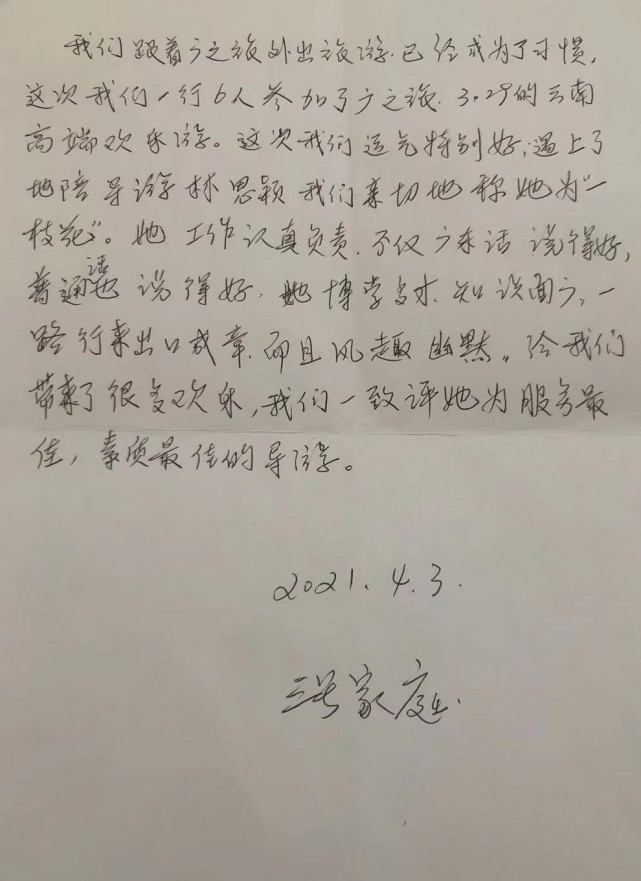 我们跟着广之旅外出旅游.已经成为了习惯,
这次我们一行6人参加了广之旅.3.29的云南
高端欢乐游。这次我们运气特别好,遇上了
地陪导游林思颖我们亲切地称她为“一
枝花”。她工作认真负责.不仅广东话说得好,
普通话也说得好.她博学多才.知识面广,一
路行来出口成章.而且风趣幽默。给我们
带来了很多欢乐,我们一致评她为服务最
佳,素质最佳的导游。
2021.4.3.
三号家庭.